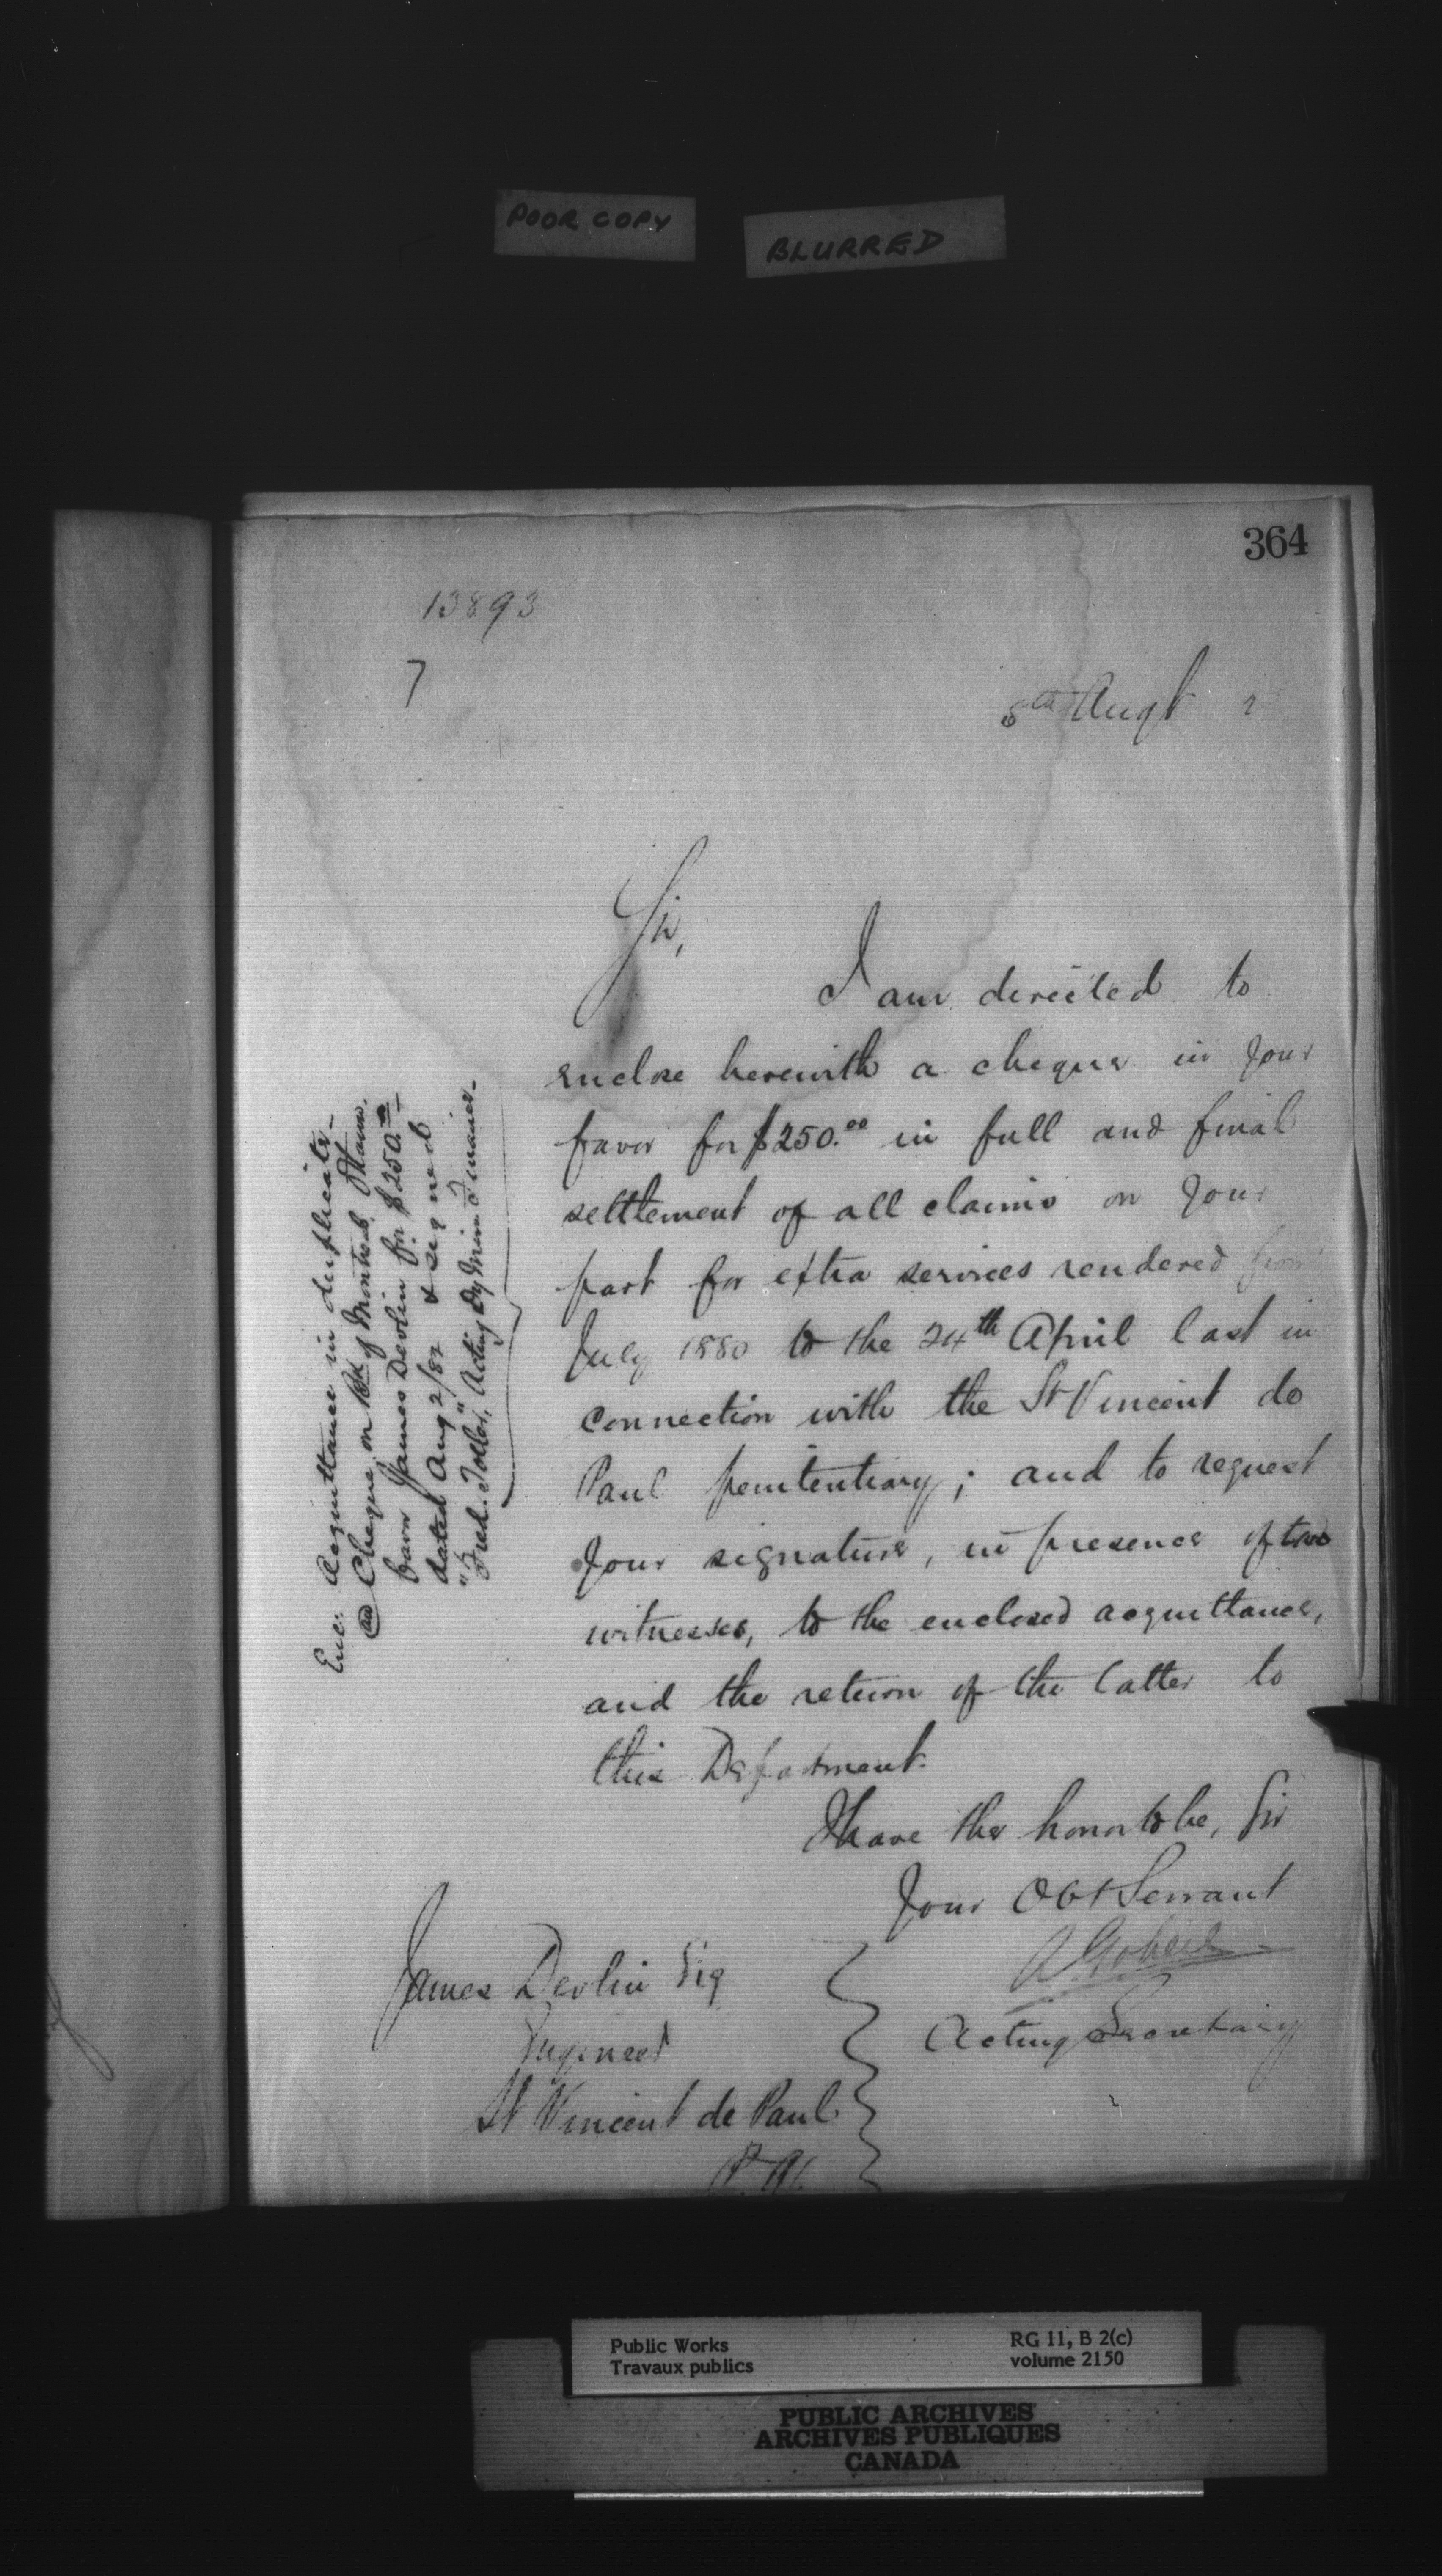 POOR COPY
BLURRED
364
13893
7
5th Augt 2
Sir,
I am directed to
enclose herewith a cheque in your
favor for $250.00 in full and final
settlement of all claims on your
part for extra services rendered from
July 1880 to the 24th April last in
connection with the St Vincent de
Paul penitentiary; and to request
your signature, in presence of two
witnesses, to the enclosed acquittance,
and the return of the latter to
this Department.
I have the honor to be, Sir
Your Obt Servant
A Gobeil
Acting Secretary
James Devlin Esq
Engineer
St Vincent de Paul
P.Q.
Enc: Acquittance in duplicate-
Cheque, on Bk of Montreal, Ottawa.
favor James Devlin for $250.00
dated Aug 2/82 & signed
"Fred. Toller," Acting Dy Min Finance.
Public Works
Travaux publics
RG 11, B 2(c)
volume 2150
PUBLIC ARCHIVES
ARCHIVES PUBLIQUES
CANADA